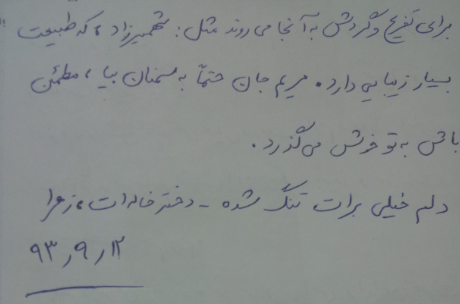 برای تفریح و گردش به آنجا می روند مثل: شهمیرزاد، که طبیعت
بسیار زیبایی دارد. مریم جان حتماً به سمنان بیا، مطمئن
باش به تو خوش می گذرد.
دلم خیلی برات تنگ شده - دختر خاله ات، زهرا
۹۳٫۹٫۱۲